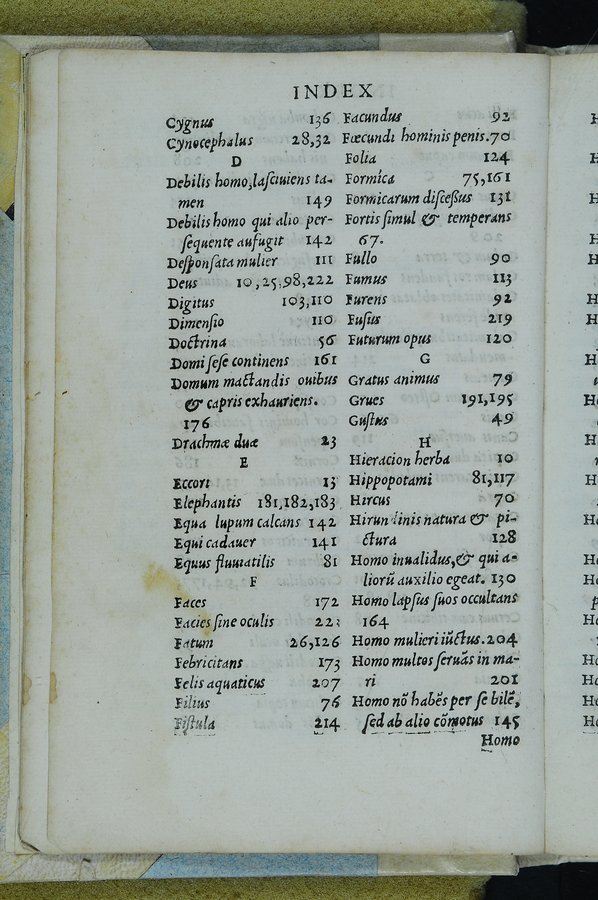 INDEX
Cygnus 136
Cynocephalus 28,32
D
Debilis homo,laſciuiens ta-
men 149
Debilis homo qui alio per-
ſequente aufugit 142
Deſponſata mulier 111
Deus 10,25,98,222
Digitus 103,110
Dimenſio 110
Doctrina 56
Domi ſeſe continens 161
Domum mactandis ouibus
& capris exhauriens.
176
Drachmæ duæ 23
E
Eccori 13
Elephantis 181,182,183
Equa lupum calcans 142
Equi cadauer 141
Equus fluuiatilis 81
F
Faces 172
Facies ſine oculis 223
Fatum 26,126
Febricitans 173
Felis aquaticus 207
Filius 76
Fiſtula 214
Facundus 92
Fœcundi hominis penis.70
Folia 124
Formica 75,161
Formicarum diſceſſus 131
Fortis ſimul & temperans
67.
Fullo 90
Fumus 113
Furens 92
Fuſus 219
Futurum opus 120
G
Gratus animus 79
Grues 191,195
Guſtus 49
H
Hieracion herba 10
Hippopotami 81,117
Hircus 70
Hirundinis natura & pi-
ctura 128
Homo inualidus,& qui a-
liorũ auxilio egeat. 130
Homo lapſus ſuos occultans
164
Homo mulieri iũctus.204
Homo multos ſeruãs in ma-
ri 201
Homo nõ habẽs per ſe bilẽ,
ſed ab alio cõmotus 145
Homo